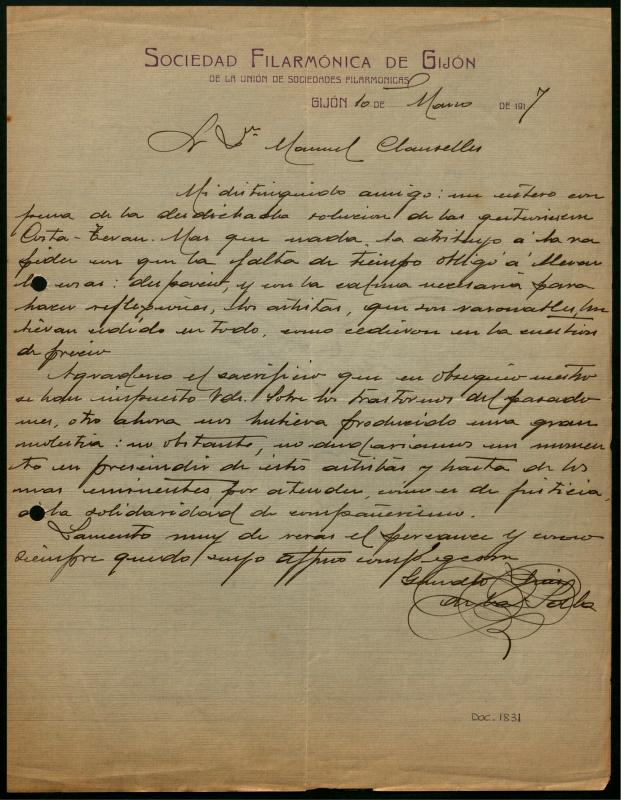 SOCIEDAD FILARMÓNICA DE GIJÓN
DE LA UNIÓN DE SOCIEDADES FILARMONICAS
GIJÓN 10 DE Marzo DE 1917
Sr Dn Manuel Clausells
Mi distinguido amigo: me entero con
pena de la desdichada solucion de las gestiones con
Costa-Teran. Mas que nada, la atribuyo á la ra
pidez con que la falta de tiempo obligó á llevar
las cosas: despacio, y con la calma necesaria para
hacer reflexiones, los artistas, que son razonables, hu
bieran cedido en todo, como cedieron en la cuestion
de precio
Agradezco el sacrificio que en obsequio nuestro
se han impuesto Vds. Sobre los trastornos del pasado
mes, otro ahora nos hubiera producido una gran
molestia: no obstante, no dudariamos un momen
to en prescindir de estos artistas y hasta de los
mas eminentes por atender, como es de justicia,
a la solidaridad de compañerismo.
Lamento muy de veras el percance y como
siempre quedo suyo affmo
de la
Doc. 1831